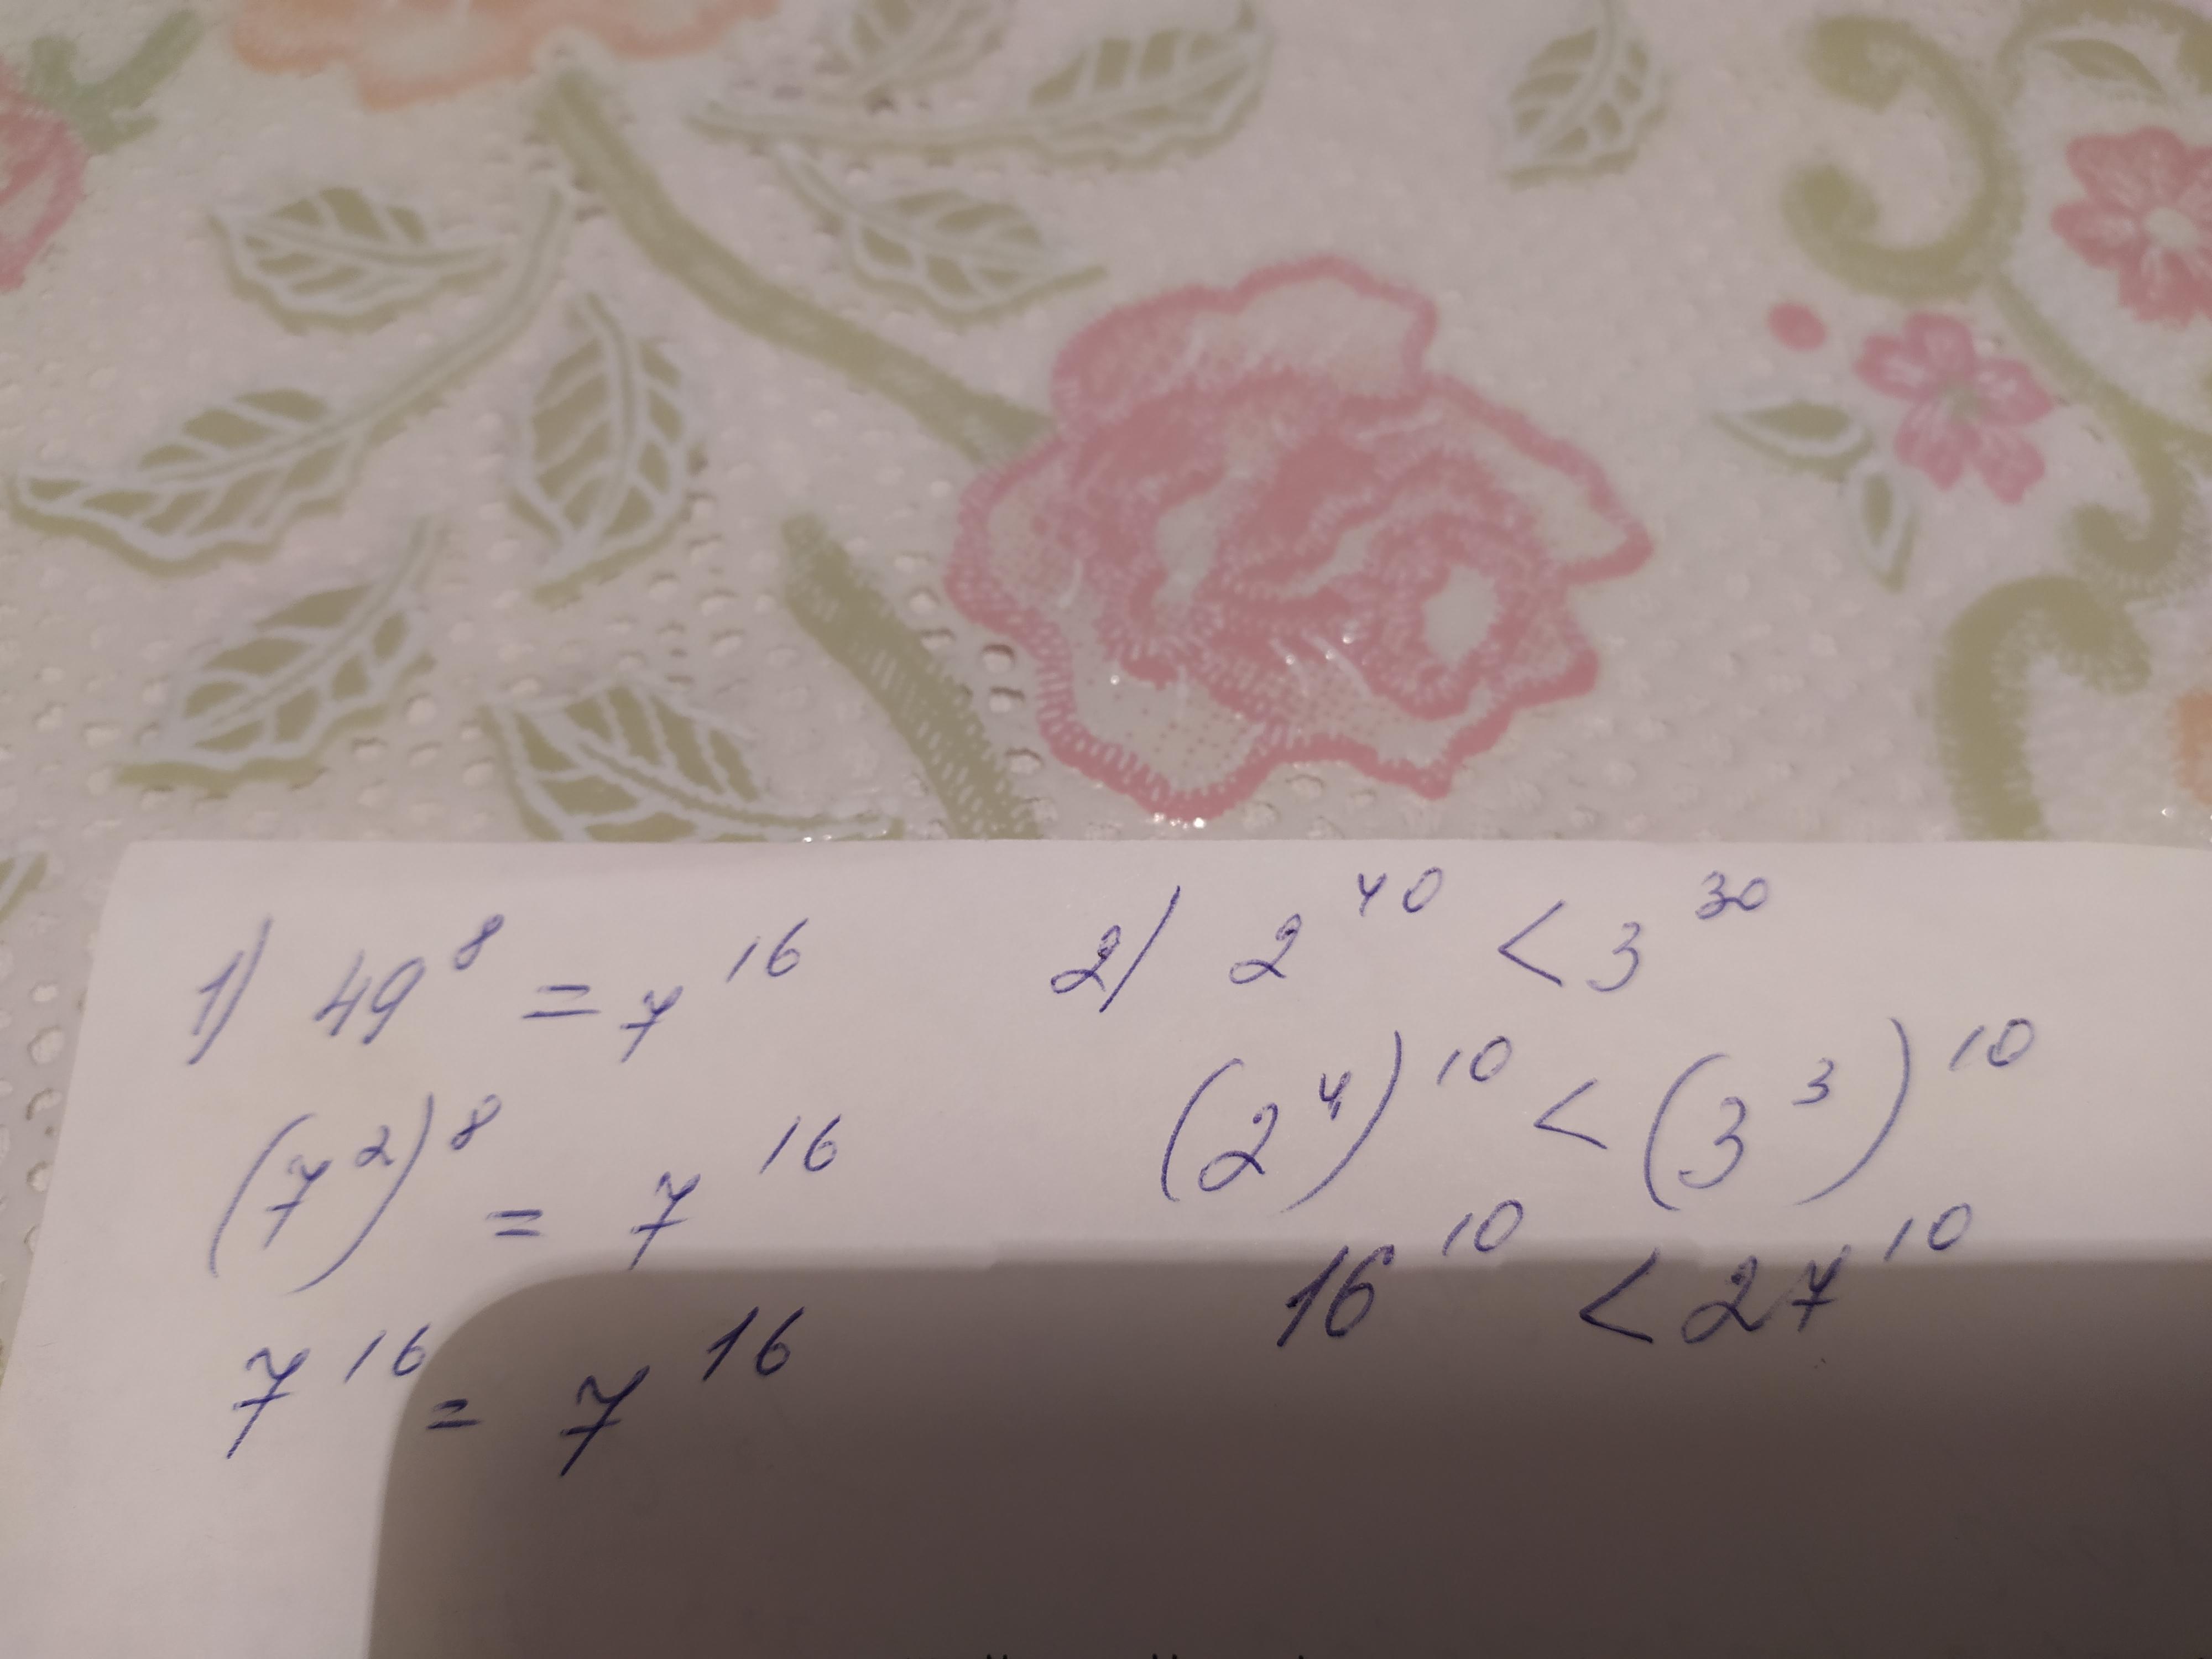 1) 49⁸ = 7¹⁶
(7²)⁸ = 7¹⁶
7¹⁶ = 7¹⁶
2) 2⁴⁰ < 3³⁰
(2⁴)¹⁰ < (3³)¹⁰
16¹⁰ < 27¹⁰